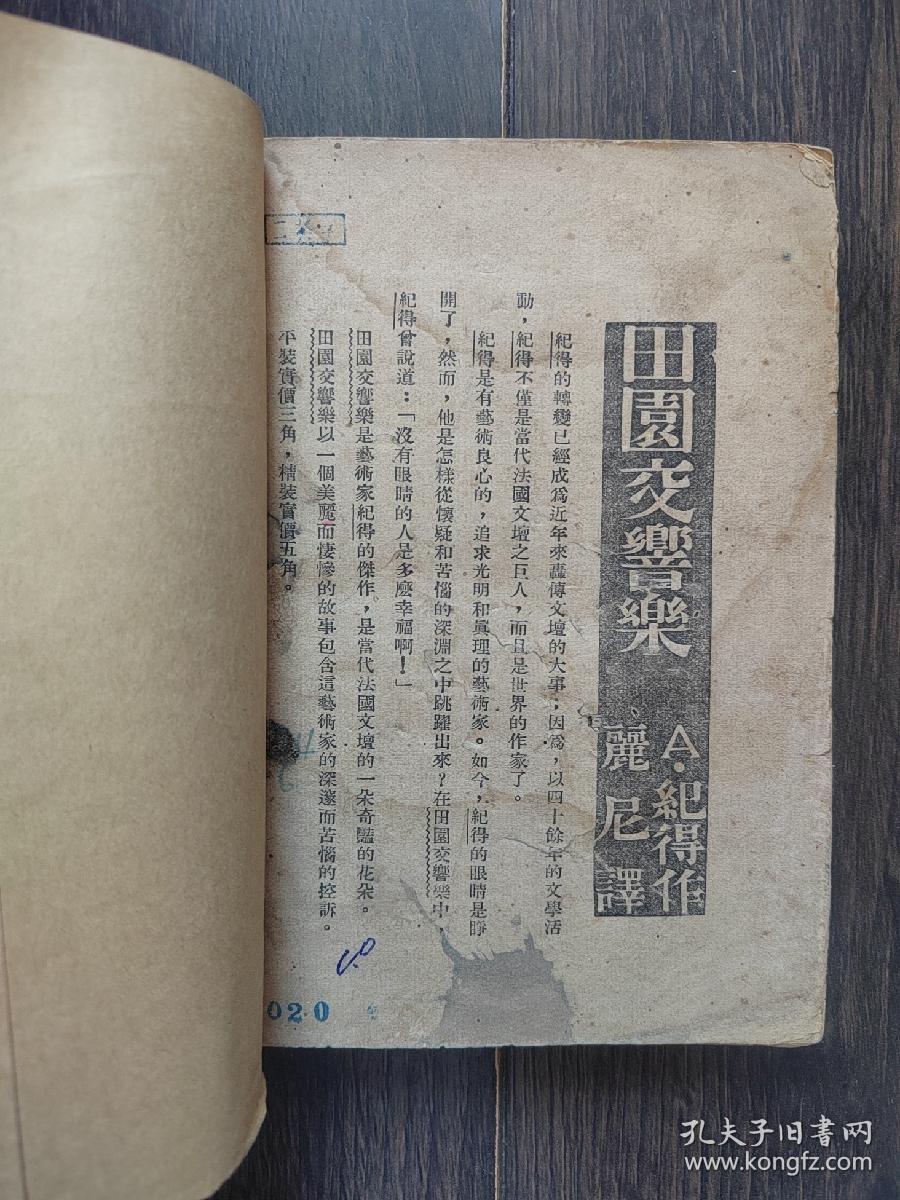 田園交響樂
A·紀得作
麗尼譯
紀得的轉變已經成爲近年來轟傳文壇的大事；因爲，以四十餘年的文學活
動，紀得不僅是當代法國文壇之巨人，而且是世界的作家了。
紀得是有藝術良心的，追求光明和眞理的藝術家。如今，紀得的眼睛是睜
開了，然而，他是怎樣從懷疑和苦惱的深淵之中跳躍出來？在田園交響樂中，
紀得曾說道：「沒有眼睛的人是多麼幸福啊！」
田園交響樂是藝術家紀得的傑作，是當代法國文壇的一朵奇豔的花朵。
田園交響樂以一個美麗而悽慘的故事包含這藝術家的深邃而苦惱的控訴。
平裝實價三角，精裝實價五角。
020
孔夫子旧书网
www.kongfz.com